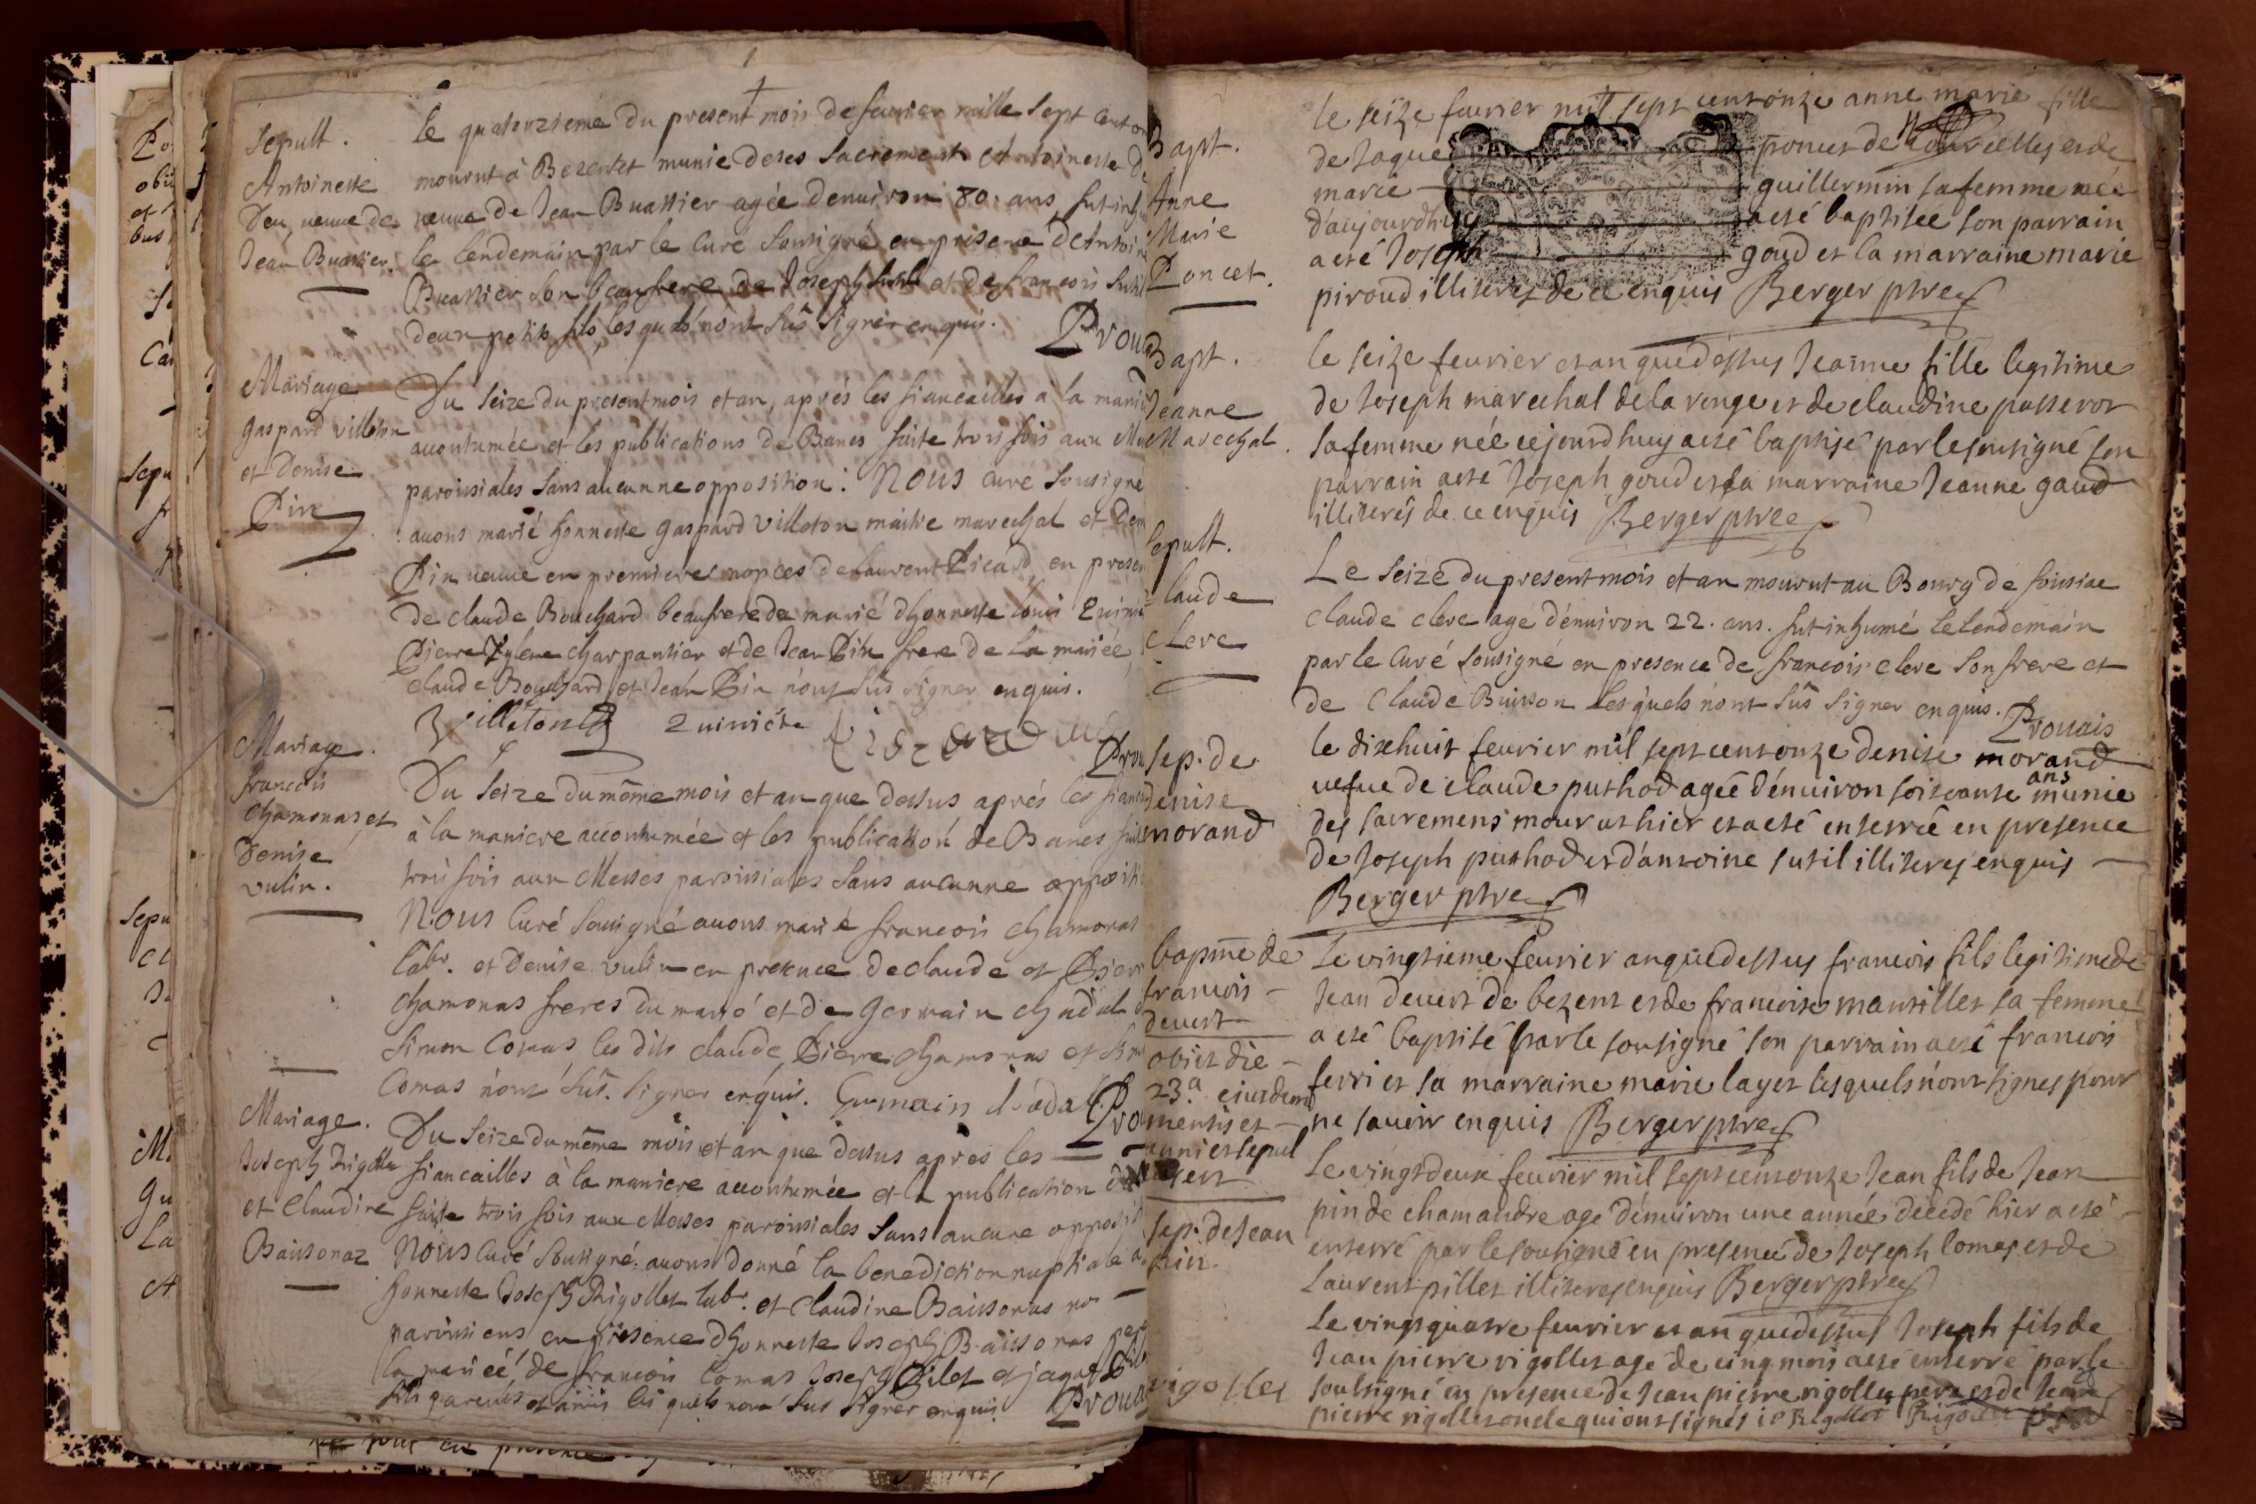 Sepult.
Antoinette
Deu, veuve de
Jean Buattier.
le quatorzieme du present mois de feurier mille Sept cent on
mourut à Bezentet munie de ses Sacrements Antoinette De
veuve de Jean Buattier agée denuiron 80. ans fut inhu
le lendemain par le Curé Sousigné en prisene d'Antoi
Buattier son beaufrere de Joseph Sutil et de francois Sutil
deux petits fils, lesquels n'ont sũs signer enquis.
Prou
Mariage
gaspard villeton
et Denise
Pin
Du Seize du present mois et an, aprés les fiancailles a la mani
accoutumée et les publications de Bancs faite trois fois aux Me
paroissiales sans aucunne opposition: Nous curé Sousigné
auons marié honneste gaspard villeton maitre marechal et Den
Pin veuve en premieres nopces de laurent Picard, en presen
de claude Bouchard beaufrere de marié dhonneste louis
Pierre charpantier et de Jean Pin frere de la mariée
claude Bouchard et Jean Pin n'ont sũs signer enquis.
Villeton
Prou
Mariage.
francois
chamonas et
Denise
vulin.
Du Seize du mẽme mois et an que dessus aprés les fianc
à la maniere accoutumée et les publication de Bancs fai
trois fois aux Messes paroissiales Sans aucunne oppositi
Nous Curé Sousigné auons marié francois chamonas
labr. et Denise vulin en presence de claude et Pierr
chamonas freres du marié et de germain chadal
simon Comas les dits claude, Pierre chamonas et Sim
Comas n'ont sũs signer enquis. Germain
Prou
Mariage.
Joseph Rigollet
et Claudine
Baissonaz
Du Seize du mẽme mois et an que dessus apres les
fiancailles à la maniere accoutumée et la publication
faite trois fois aux Messes paroissiales Sans aucune opposi
Nous Curé Sousigné auons donné la benediction nuptiale a
honneste Joseph Rigollet labr. et Claudine Baissonas no
paroissiens en présence dhonneste Joseph Baissonas pere
la mariée, de francois Comas Joseph Pilet et jaque
fils parents et amis lesquels nont sus signer enquis
Prou
Bapt.
Anne
Marie
Poncet.
le seize feurier mil sept cent onze anne marie fille
de Jaque poncet de et de
marie guillermin sa femme née
d'aujourdhuy a eté baptisée son parrain
a eté Joseph goud et la marraine marie
piroud illiterés de ce enquis Berger ptre
Bapt.
Jeanne
Marechal.
le seize feurier et an que dessus Jeanne fille legitime
de Joseph marechal de la venge et de claudine passerot
sa femme née cejourdhuy a eté baptisé par le sousigné son
parrain a eté Joseph goud et la marraine Jeanne gaud
illiterés de ce enquis Berger ptre
Sepult.
Claude
Clere
Le Seize du present mois et an mourut au Bourg de foissiac
claude clere agé dénuiron 22. ans. fut inhumé le lendemain
par le Curé sousigné en presence de francois clere son frere et
de Claude Buisson lesquels n'ont sũs signer enquis. Prouais
Sep. de
denise
morand
le dixhuit feurier mil sept cent onze denise morand
vefue de claude puthod agée dénuiron soixante ans munie
des sacremens mourut hier et a eté enterrée en presence
de Joseph puthod et d'antoine sutil illiterés enquis
Berger ptre
bapme de
francois
deuert
obiit die
23.a eiusdem
mensis et
anni et sepul
Le vingtieme feurier an que dessus francois fils legitime de
Jean deuert de bezent et de francoise mansillet sa femme
a eté baptisé par le sousigné son parrain a eté francois
ferri et sa marraine marie layet lesquels n'ont signés pour
ne scauoir enquis Berger ptre
Sep. de Jean
pin.
Le vingt deux feurier mil sept cent onze Jean fils de Jean
pin de chamandre agé dénuiron une année decedé hier a eté
enterré par le sousigné en presence de Joseph Comas et de
Laurent pillet illiterés enquis Berger ptre
rigollet
Le vingt quatre feurier et an que dessus Joseph fils de
Jean pierre rigollet agé de cinq mois a eté enterré par le
soussigné en presence de Jean pierre rigollet pere et de Jean
pierre rigollet oncle qui ont signés Rigollet